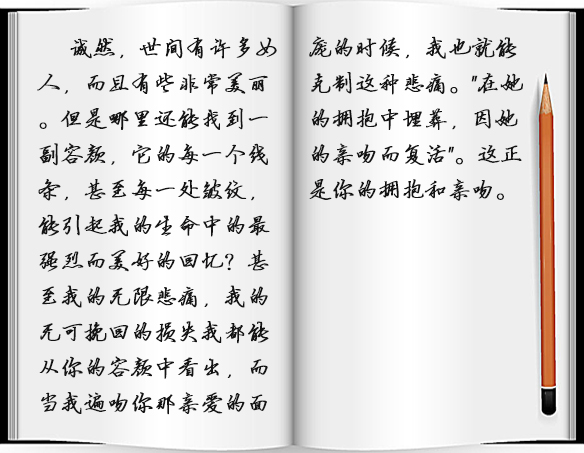 诚然，世间有许多女
人，而且有些非常美丽
。但是哪里还能找到一
副容颜，它的每一个线
条，甚至每一处皱纹，
能引起我的生命中的最
强烈而美好的回忆？甚
至我的无限悲痛，我的
无可挽回的损失我都能
从你的容颜中看出，而
当我遍吻你那亲爱的面
庞的时候，我也就能
克制这种悲痛。"在她
的拥抱中埋葬，因她
的亲吻而复活"。这正
是你的拥抱和亲吻。